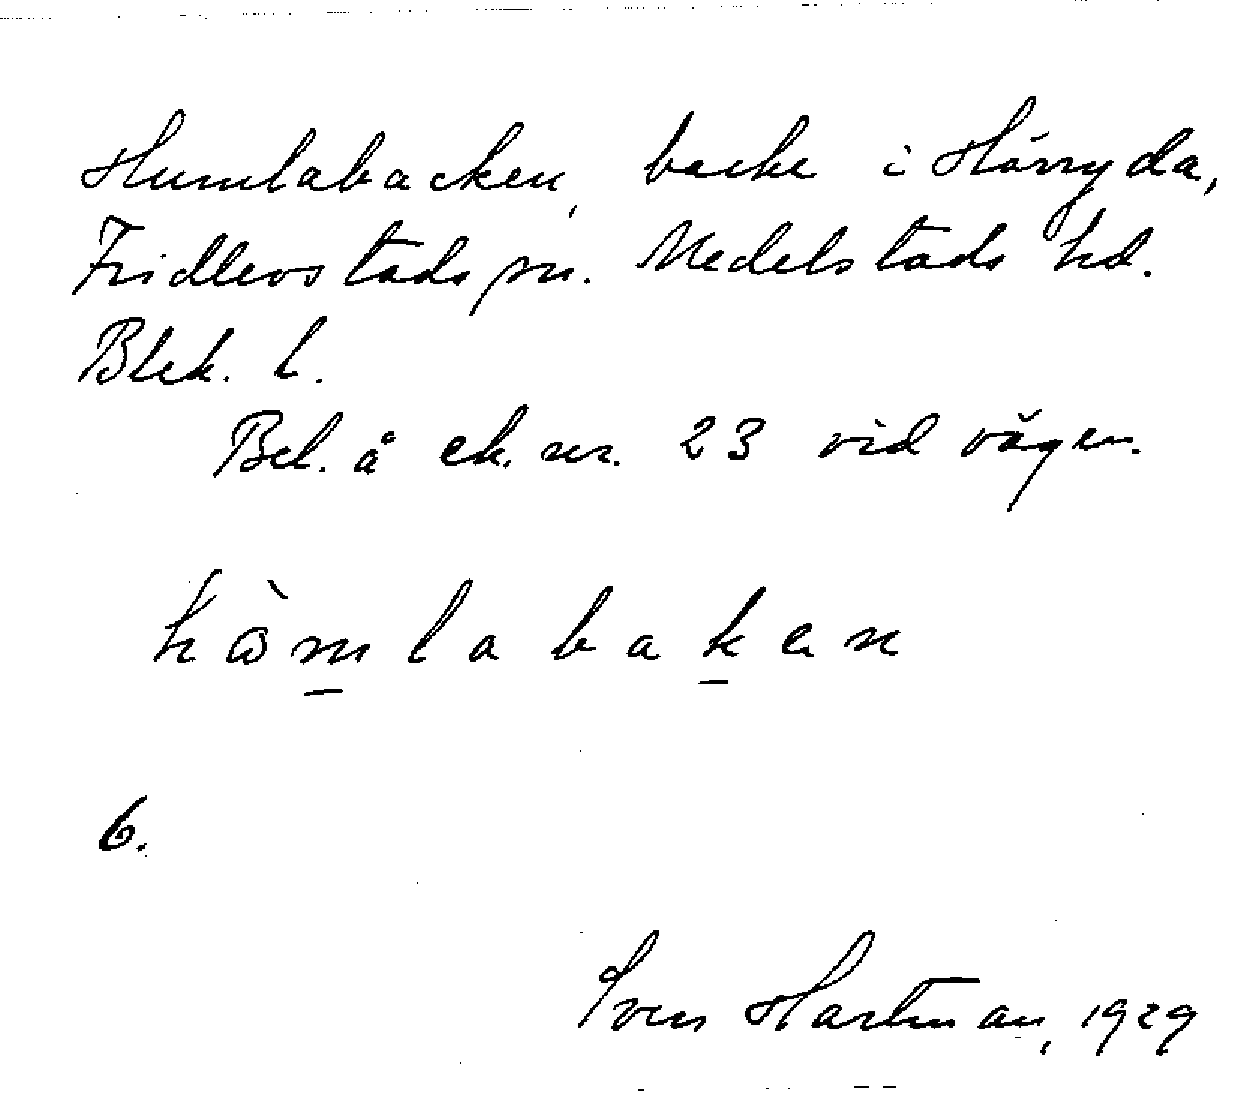 Humlabacken, backe i Hårryda,
Fridlevstads sn. Medelstads hd.
Blek. l.
Bel. å ek. nr. 23 vid vägen.
hòmlabaken
6.
Sven Hartman, 1929